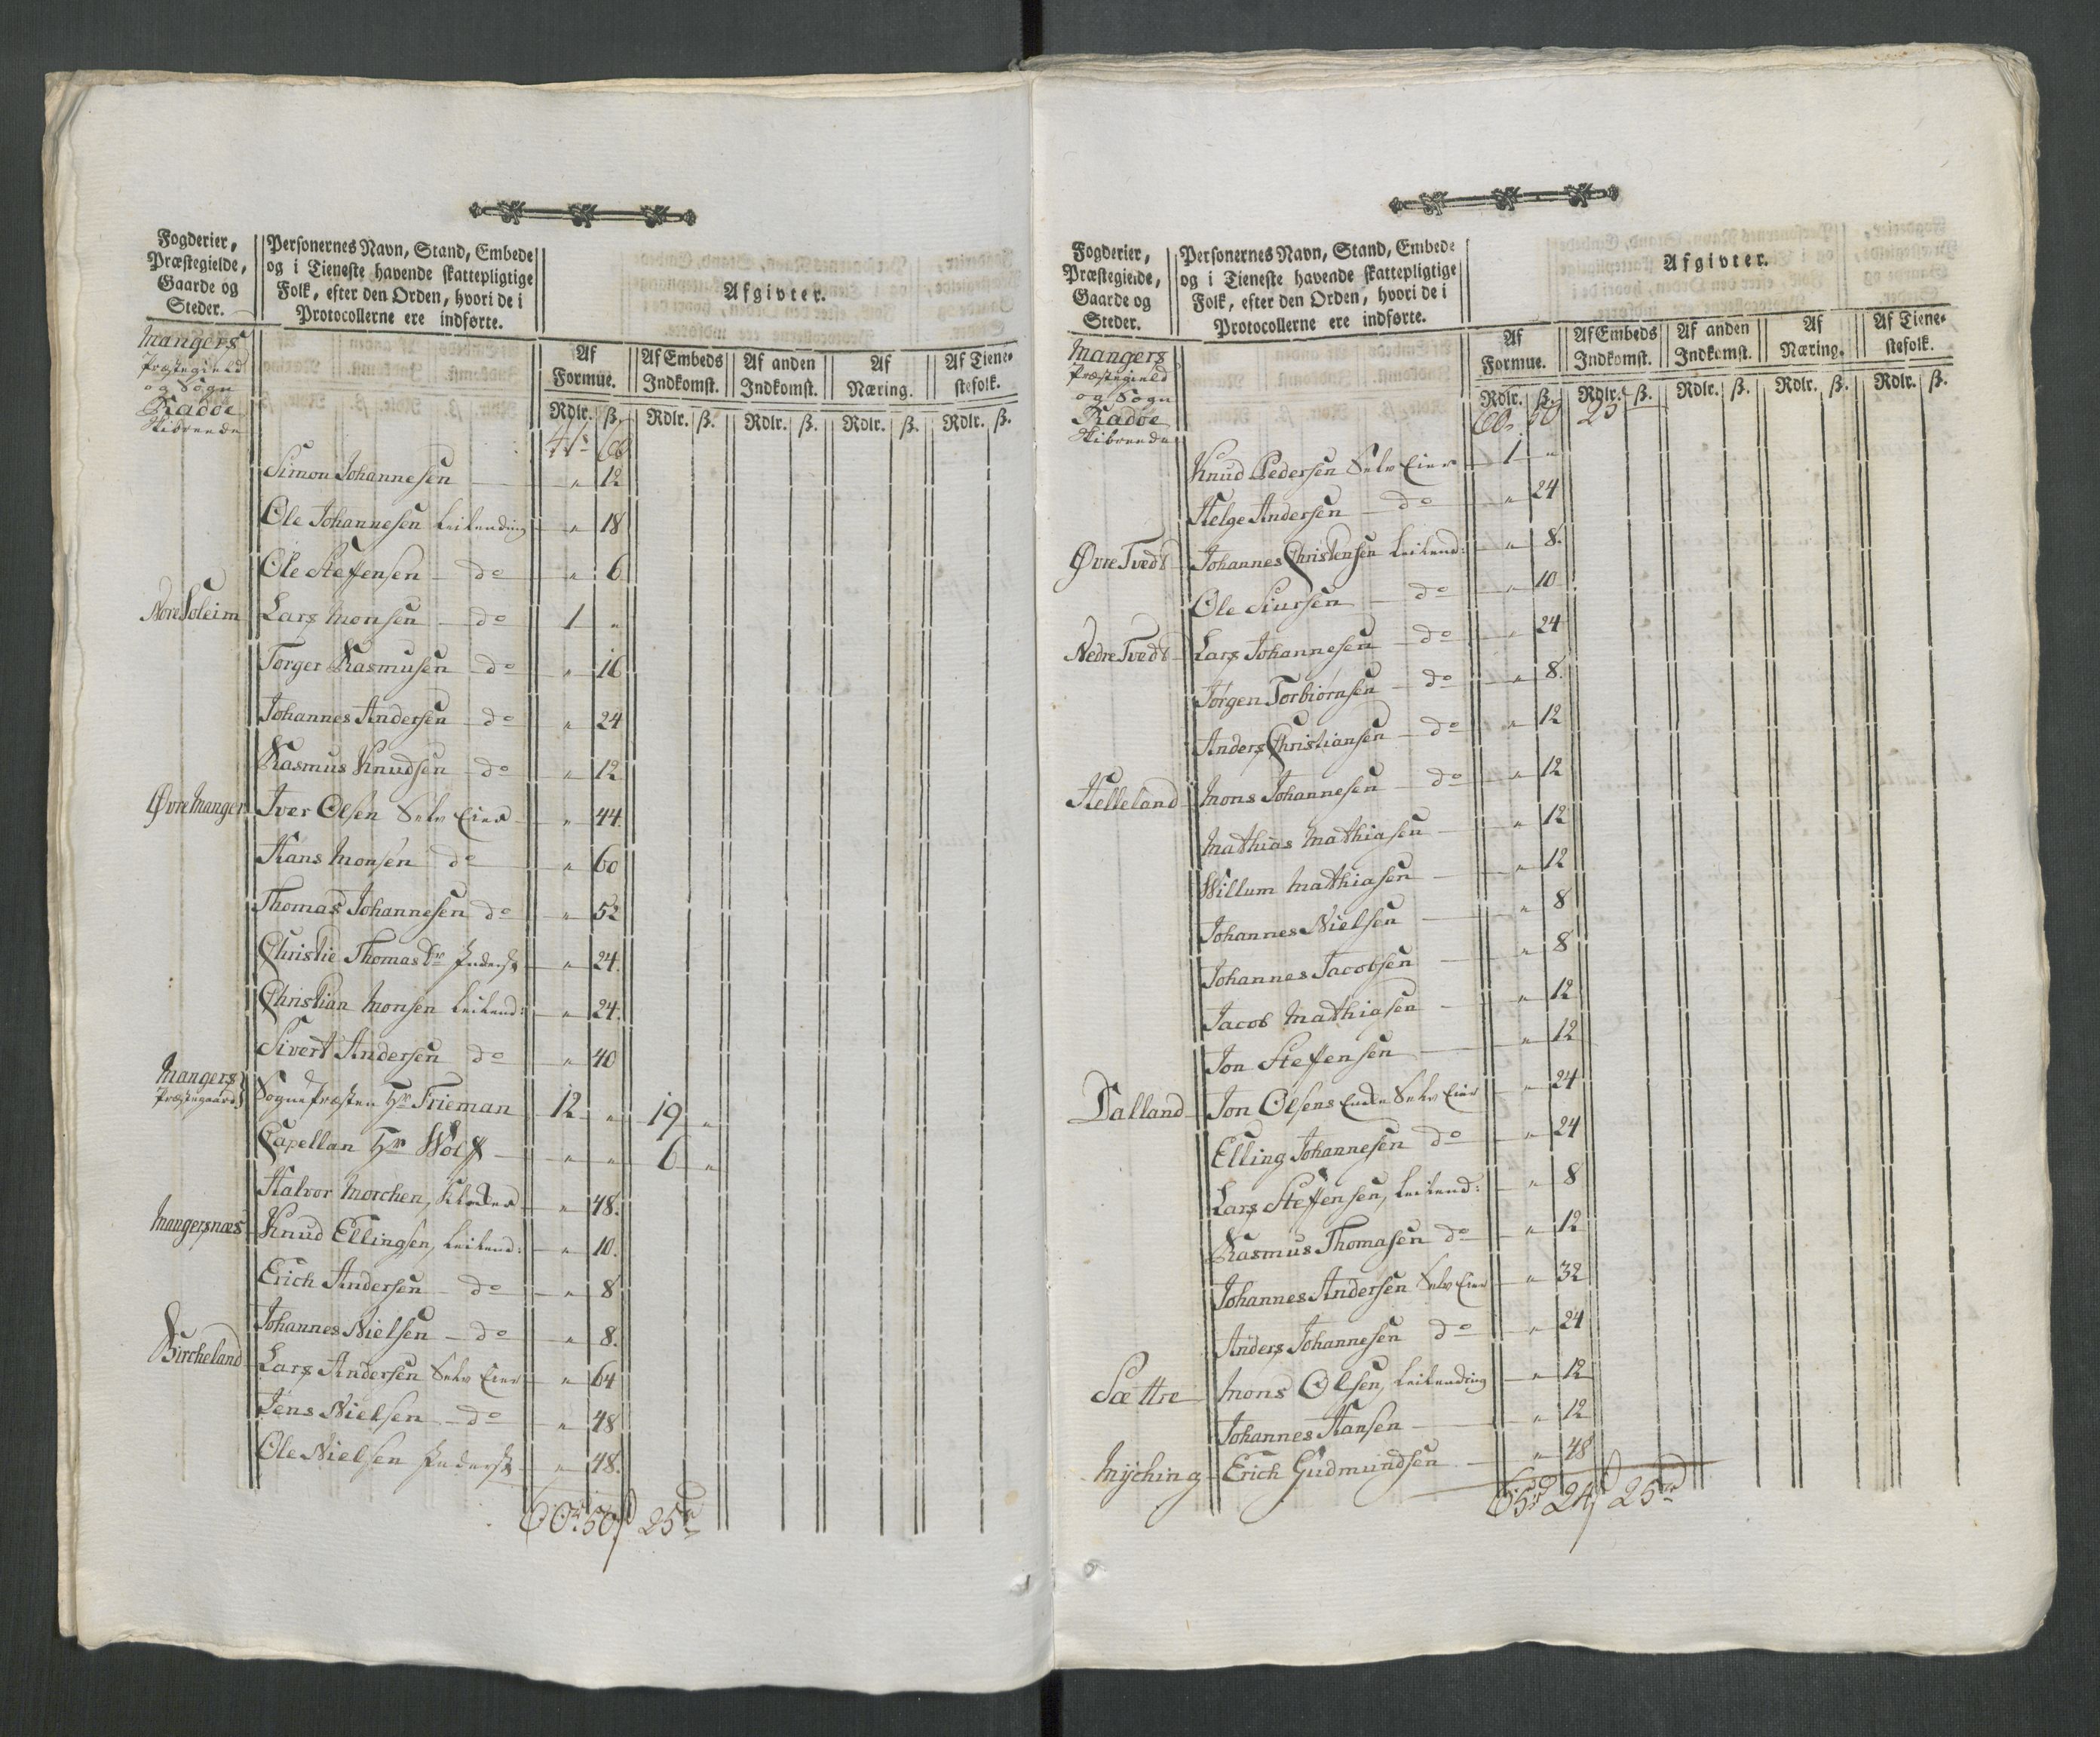 Fogderier,
Præstegielde,
Gaarde og
Steder.
Personernes Navn, Stand, Embede
og i Tieneste havende skattepligtige
Folk, efter den Orden, hvori de i
Protocollerne ere indførte.
Afgivter.
Af
Formue.
Af Embeds
Indkomst.
Af anden
Indkomst.
Af
Næring.
Af Tiene-
stefolk.
Rdlr. ß. Rdlr. ß. Rdlr. ß. Rdlr. ß. Rdlr. ß.
Mangers
Præstegield
og Sogn
Radøe
Skibreede
Simon Johannesen — " 12
Ole Johannesen Leilending " 18
Ole Steffensen — do " 6
Nore Soleim Lars Monsen — do 1 "
Torger Rasmusen do " 16
Johannes Andersen — do " 24
Rasmus Knudsen — do " 12
Øvre Manger Iver Olsen Selv Eier " 44.
Hans Monsen do " 60
Thomas Johannesen do " 52
Christie Thomas Dr Inderst " 24.
Christian Monsen Leilend: " 24.
Sivert Andersen do " 40
Mangers
Præstegaard Sognepræsten Hr Frieman 12 " 19 "
Capellan Hr Wolff — " " 6 "
Halvor Morchen, Klocker " 48.
Mangersnæs Knud Ellingsen, Leilend: " 10.
Erich Andersen — do " 8
Johannes Nielsen — do " 8.
Bircheland Lars Andersen Selv Eier " 64
Jens Nielsen — do " 48
Ole Nielsen Inderst " 48.
60r. 50ß 25r
Fogderier,
Præstegielde,
Gaarde og
Steder.
Personernes Navn, Stand, Embede
og i Tieneste havende skattepligtige
Folk, efter den Orden, hvori de i
Protocollerne ere indførte.
Afgivter.
Af
Formue.
Af Embeds
Indkomst.
Af anden
Indkomst.
Af
Næring.
Af Tiene-
stefolk.
Rdlr. ß. Rdlr. ß. Rdlr. ß. Rdlr. ß. Rdlr. ß.
Mangers
Præstegield
og Sogn
Radøe
Skibreede
60. 50 25
Knud Pedersen Selv Eier 1 "
Helge Andersen — do " 24
Øvre Tvedt Johannes Christensen Leilend: " 8.
Ole Siursen — do " 10
Nedre Tvedt Lars Johannesen — do " 24
Jørgen Torbiørnsen — do " 8.
Anders Christiansen — do " 12
Helleland Mons Johannesen — do " 12
Mathias Mathiasen — " 12
Willum Mathiasen — " 12
Johannes Nielsen — " 8
Johannes Jacobsen — " 8
Jacob Mathiasen — " 12
Jon Steffensen — " 12
Dalland Jon Olsens Enke Selv Eier " 24
Elling Johannesen do " 24
Lars Steffensen, Leilend: " 8
Rasmus Thomasen do " 12
Johannes Andersen Selv Eier " 32
Anders Johannesen do " 24
Sættre Mons Olsen, Leilending " 12
Johannes Hansen — " 12
Myching Erich Gudmundsen — " 48
65r 24ß 25r